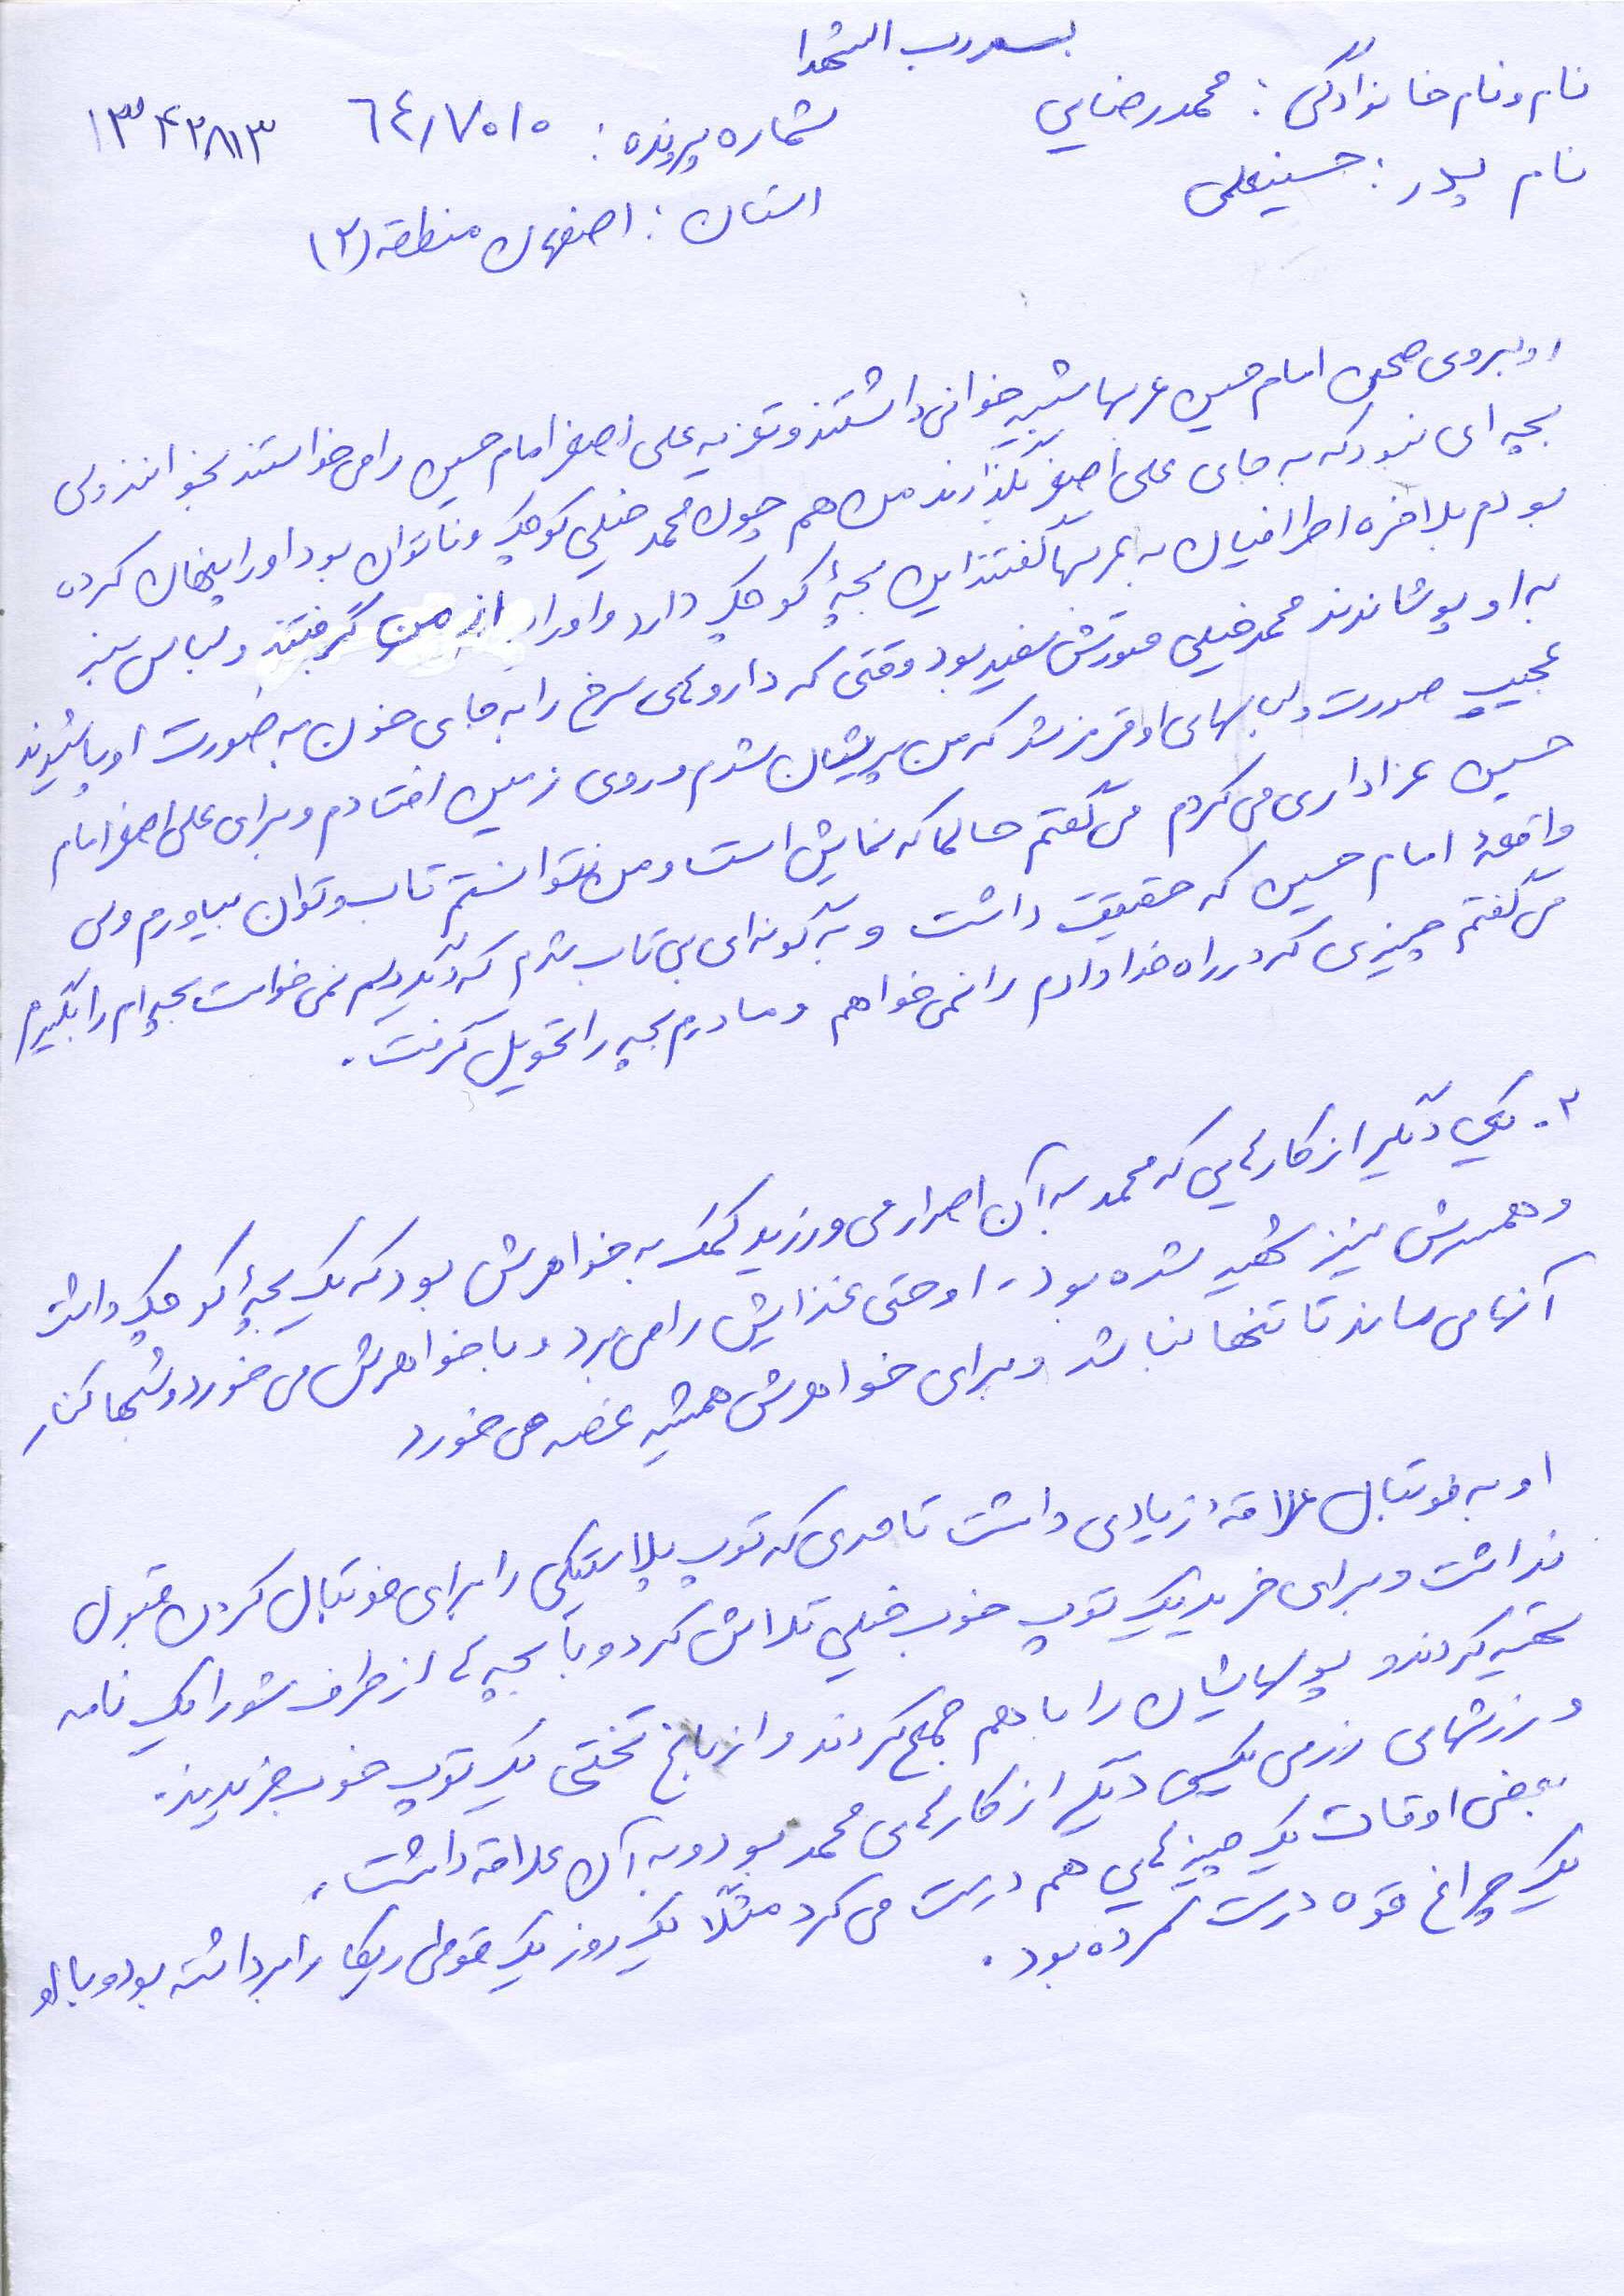 بسم رب الشهدا
نام و نام خانوادگی : محمد رضایی
شماره پرونده : ٦٤/٧٠١٠
۱۳۴۲۸۱۳
نام پدر : حسینعلی
استان : اصفهان منطقه (۲)
روبروی صحن امام حسین عربها شبیه خوانی داشتند و تعزیه علی اصغر امام حسین را می خواستند بخوانند ولی
بچه ای نبود که به جای علی اصغر بگذارند من هم چون محمد خیلی کوچک و ناتوان بود او را پنهان کرده
بودم بلاخره اطرافیان به عربها گفتند این بچهٔ کوچک دارد و او را از من گرفتند و لباس سبز
به او پوشاندند محمد خیلی صورتش سفید بود وقتی که داروهای سرخ را به جای خون به صورت او پاشیدند
عجیب صورت و لباسهای او قرمز شد که من پریشان شدم و روی زمین افتادم و برای علی اصغر امام
حسین عزاداری می کردم می گفتم حالا که نمایش است و من نتوانستم تاب و توان بیاورم ولی
واقعهٔ امام حسین که حقیقت داشت و به گونه ای بی تاب شدم که دیگر دلم نمی خواست بچه ام را بگیرم
می گفتم چیزی که در راه خدا دادم را نمی خواهم و مادرم بچه را تحویل گرفت.
۲. یکی دیگر از کارهایی که محمد به آن اصرار می ورزید کمک به خواهرش بود که یک بچهٔ کوچک داشت
و همسرش نیز شهید شده بود. او حتی غذایش را می برد و با خواهرش می خورد و شبها کنار
آنها می ماند تا تنها نباشد و برای خواهرش همیشه غصه می خورد
او به فوتبال علاقهٔ زیادی داشت تا حدی که توپ پلاستیکی را برای فوتبال کردن قبول
نداشت و برای خرید یک توپ خوب خیلی تلاش کرد و با بچه ها از طرف شورا یک نامه
تهیه کردند و پولهایشان را با هم جمع کردند و از باغ تختی یک توپ خوب خریدند.
ورزشهای رزمی یکی دیگر از کارهای محمد بود و به آن علاقه داشت.
بعضی اوقات یک چیزهایی هم درست می کرد مثلاً یک روز یک قوطی ریکا را برداشته بود و با او
یک چراغ قوه درست کرده بود.